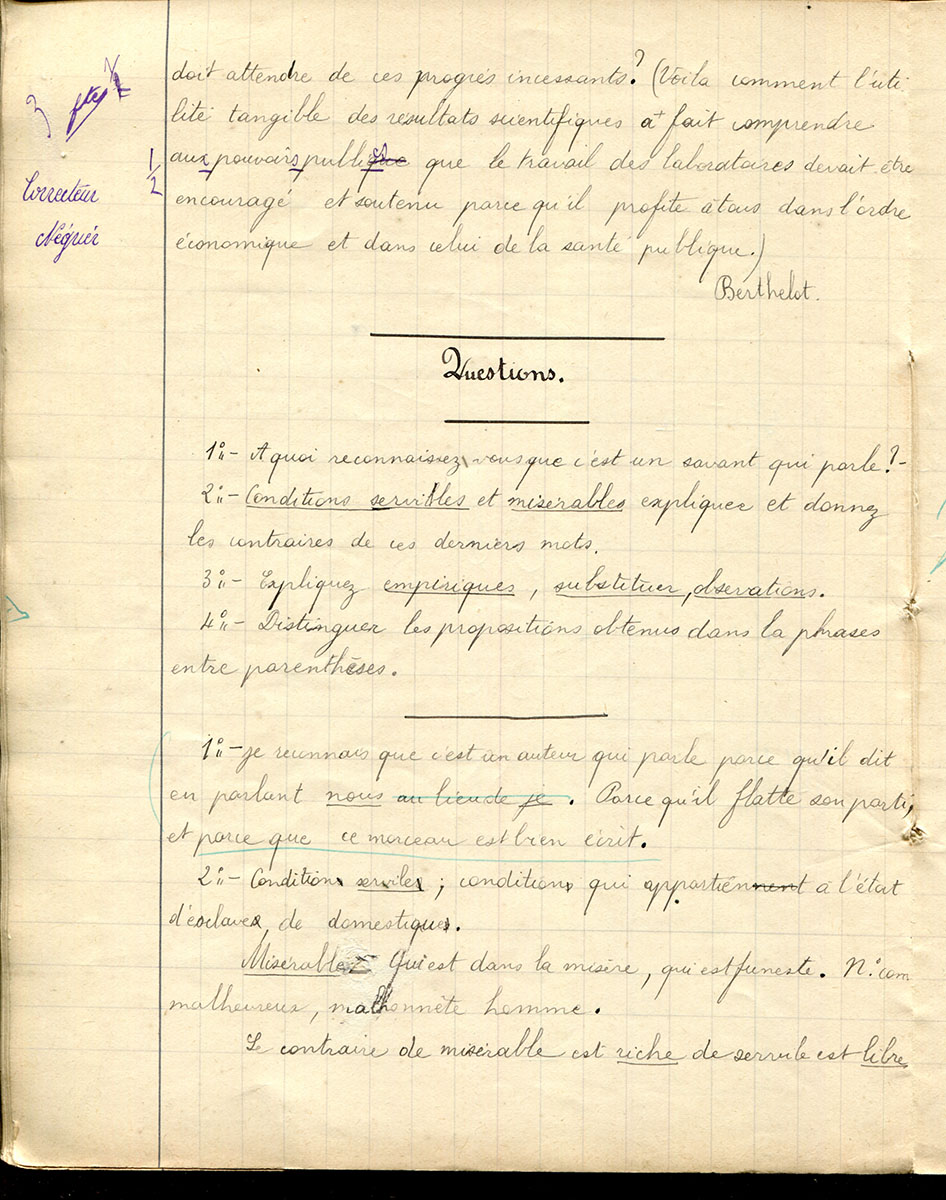 doit attendre de ces progrès incessants ? (Voila comment l'uti
lité tangible des résultats scientifiques a fait comprendre
aux pouvoirs publics que le travail des laboratoires devait être
encouragé et soutenu parce qu'il profite à tous dans l'ordre
économique et dans celui de la santé publique.)
Berthelot.
3
1/2
Correcteur
Négrier
Questions.
1° - A quoi reconnaissez vous que c'est un savant qui parle ? -
2° - Conditions serviles et misérables expliquer et donnez
les contraires de ces derniers mots.
3° - Expliquez empiriques, substituer, observations.
4° - Distinguer les propositions obtenus dans la phrases
entre parenthèses.
1° - je reconnais que c'est un auteur qui parle parce qu'il dit
en parlant nous au lieu de je. Parce qu'il flatte son parti,
et parce que ce morceau est bien écrit.
2° - Conditions serviles ; conditions qui appartiennent à l'état
d'esclaves, de domestiques.
Misérables Qui est dans la misère, qui est funeste. N. com
malheureux, malhonnête homme.
Le contraire de misérable est riche de servile est libre